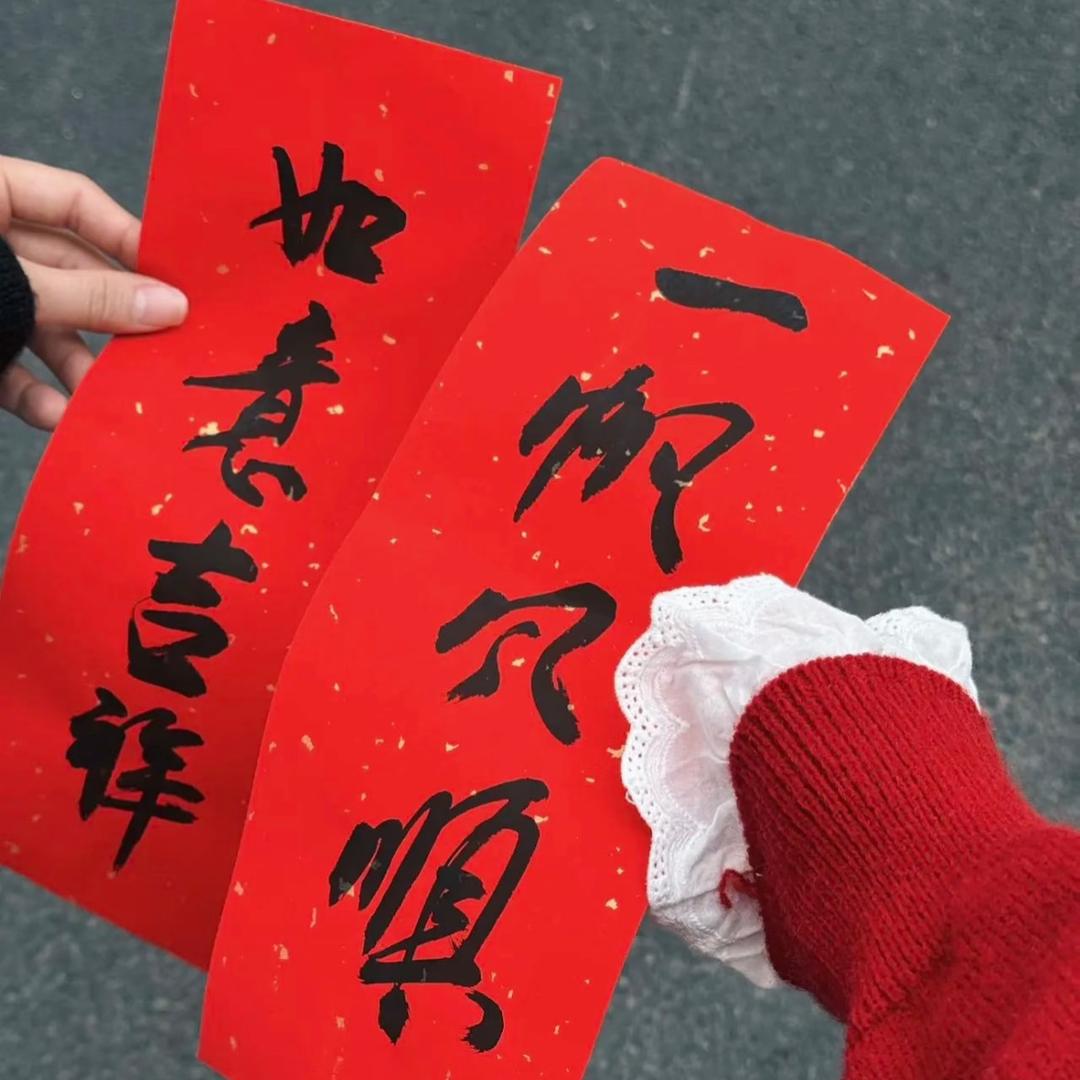 如意吉祥
一帆风順